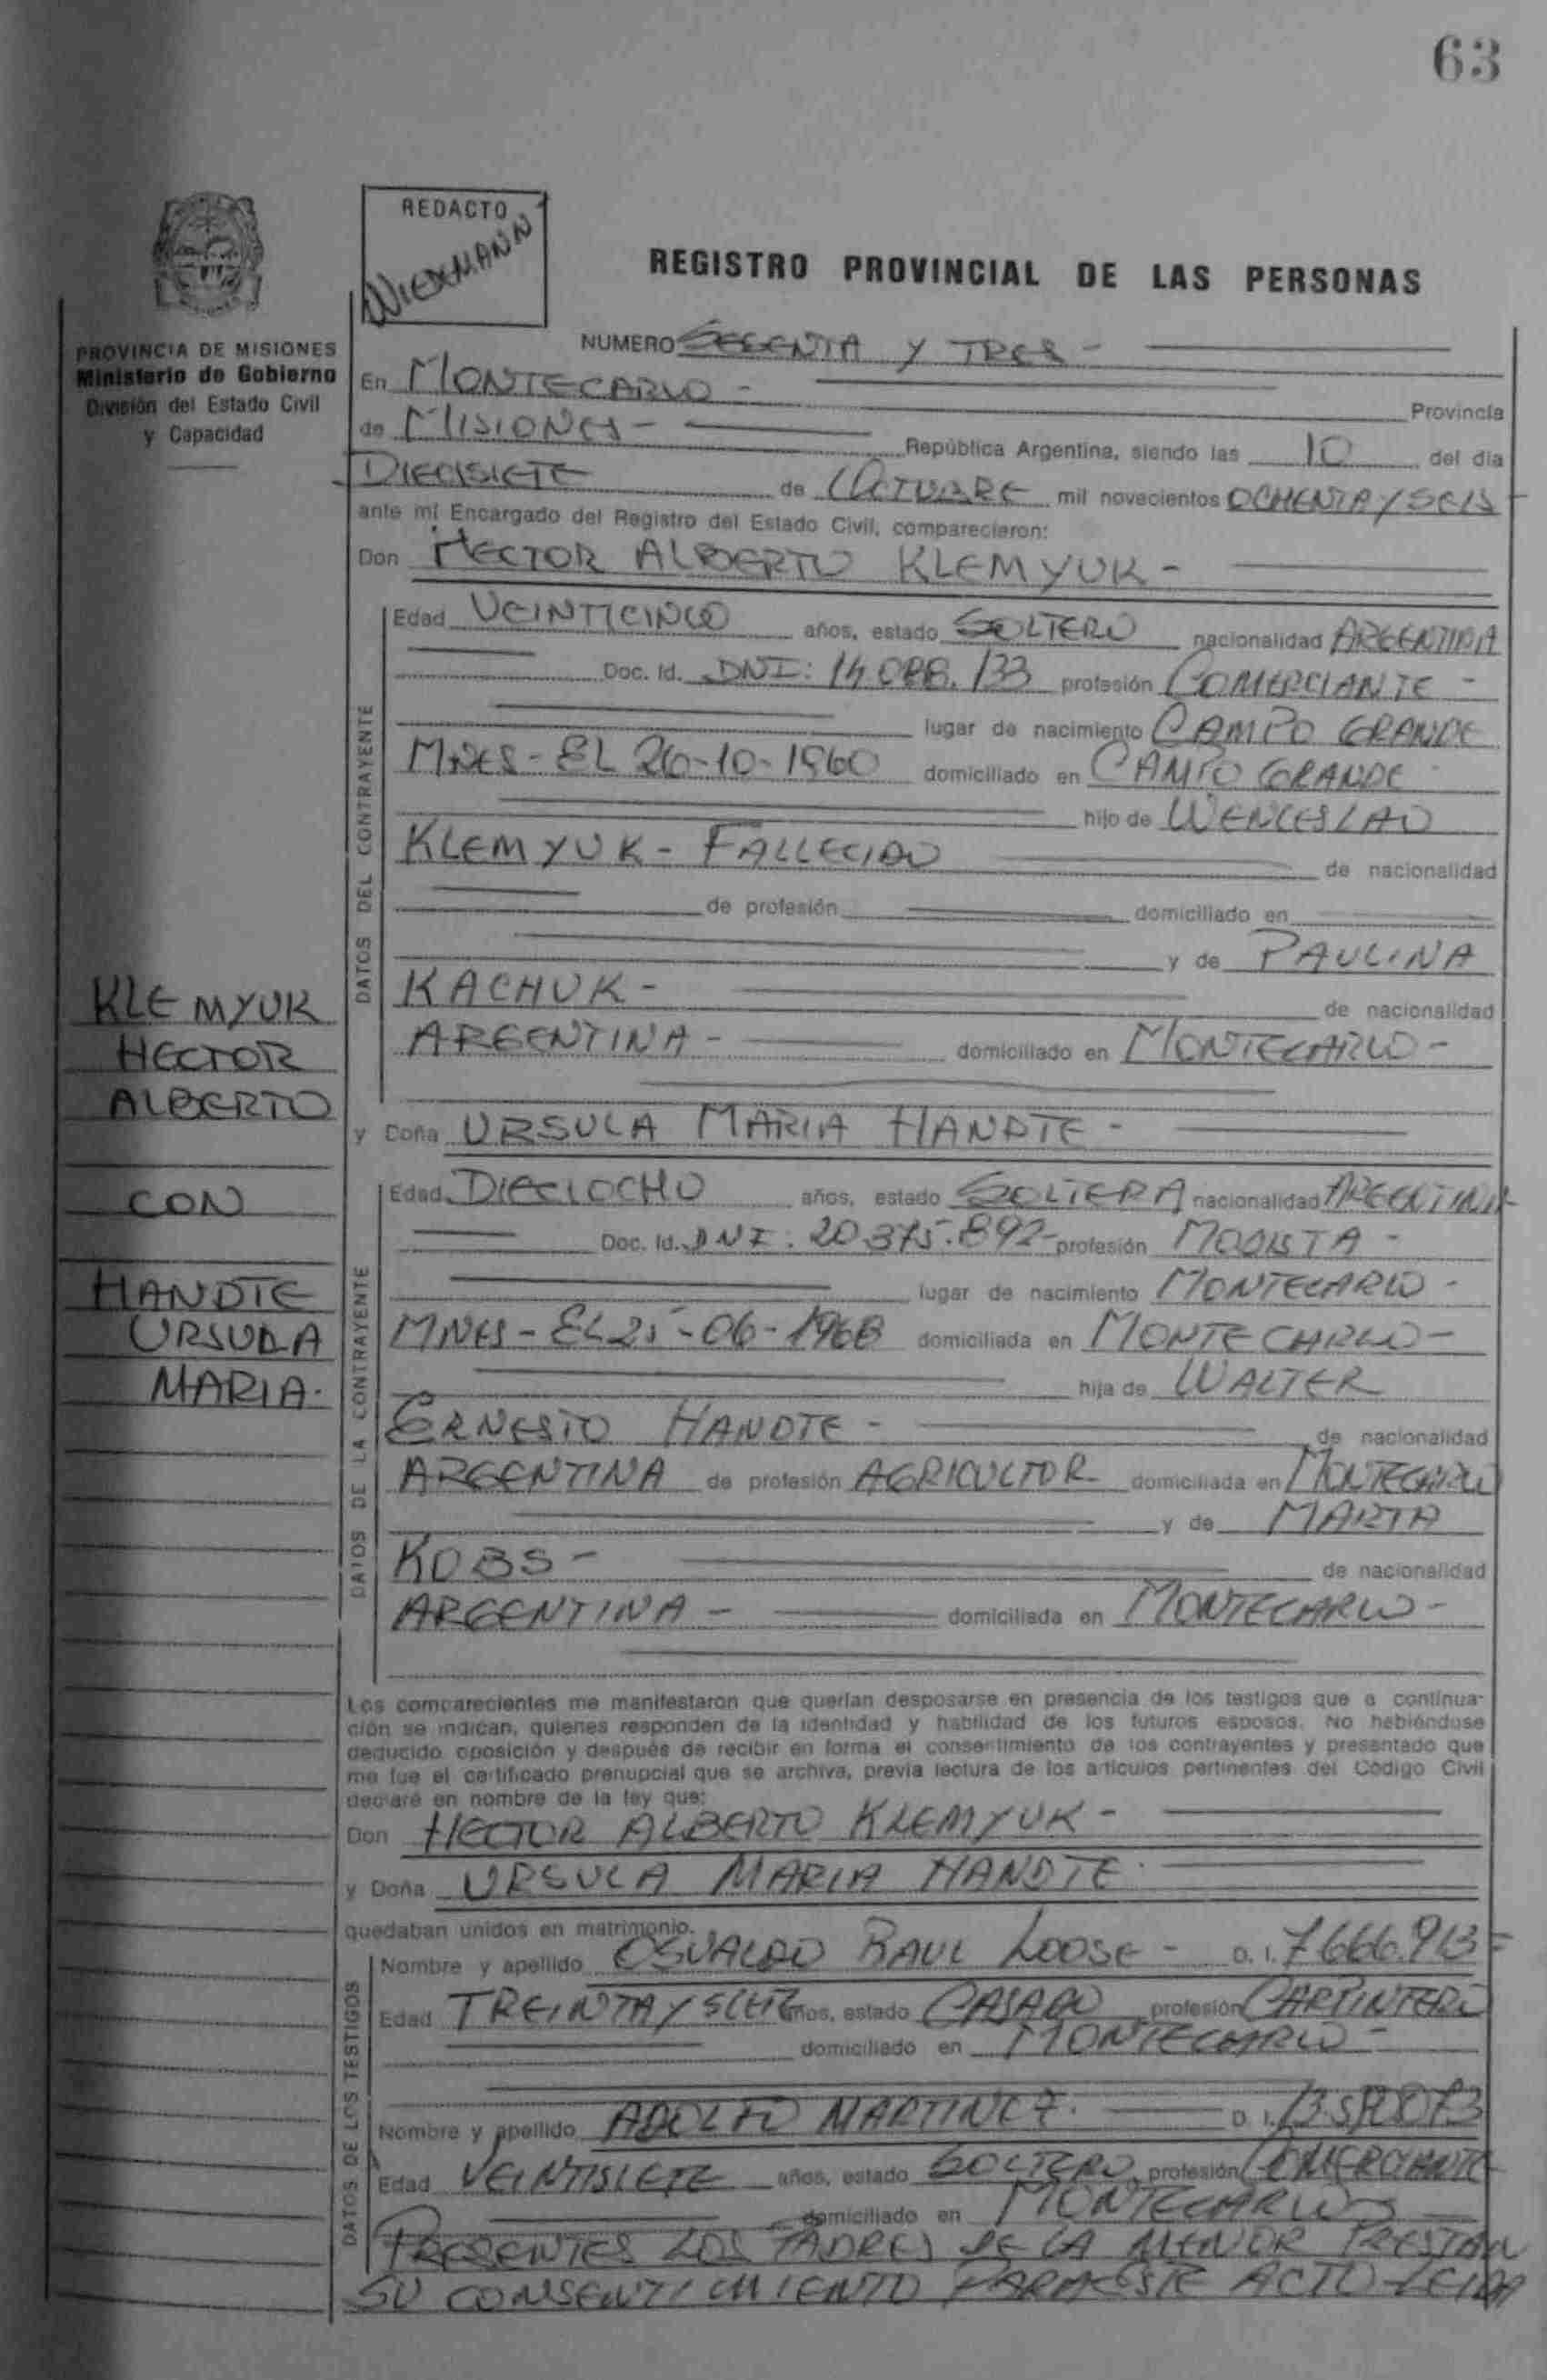 63
REDACTO
WIEXMANN
REGISTRO PROVINCIAL DE LAS PERSONAS
PROVINCIA DE MISIONES
Ministerio de Gobierno
División del Estado Civil
y Capacidad
NUMERO SESENTA Y TRES -
En MONTECARLO - Provincia
de MISIONES - República Argentina, siendo las 10 del día
DIECISIETE de OCTUBRE mil novecientos OCHENTA Y SEIS
ante mí Encargado del Registro del Estado Civil, comparecieron:
Don HECTOR ALBERTO KLEMYUK -
DATOS DEL CONTRAYENTE
Edad VEINTICINCO años, estado SOLTERO nacionalidad ARGENTINA
Doc. Id. DNI: 14.088.133 profesión COMERCIANTE -
lugar de nacimiento CAMPO GRANDE
MNES - EL 26-10-1960 domiciliado en CAMPO GRANDE
hijo de WENCESLAO
KLEMYUK - FALLECIDO de nacionalidad
de profesión domiciliado en
y de PAULINA
KACHUK - de nacionalidad
ARGENTINA - domiciliado en MONTECARLO -
KLEMYUK
HECTOR
ALBERTO
CON
HANDTE
URSULA
MARIA.
y Doña URSULA MARIA HANDTE -
DATOS DE LA CONTRAYENTE
Edad DIECIOCHO años, estado SOLTERA nacionalidad ARGENTINA
Doc. Id. DNI: 20.375.892 - profesión MODISTA -
lugar de nacimiento MONTECARLO -
MNES - EL 25-06-1968 domiciliada en MONTECARLO -
hija de WALTER
ERNESTO HANDTE - de nacionalidad
ARGENTINA de profesión AGRICULTOR domiciliada en MONTECARLO
y de MARTA
KOBS - de nacionalidad
ARGENTINA - domiciliada en MONTECARLO -
Los comparecientes me manifestaron que querían desposarse en presencia de los testigos que a continua-
ción se indican, quienes responden de la identidad y habilidad de los futuros esposos. No habiéndose
deducido oposición y después de recibir en forma el consentimiento de los contrayentes y presentado que
me fue el certificado prenupcial que se archiva, previa lectura de los artículos pertinentes del Código Civil
declaré en nombre de la ley que:
Don HECTOR ALBERTO KLEMYUK -
y Doña URSULA MARIA HANDTE.
quedaban unidos en matrimonio.
DATOS DE LOS TESTIGOS
Nombre y apellido OSVALDO RAUL LOOSE - D. I. 7.666.913 =
Edad TREINTA Y SIETE años, estado CASADO profesión CARPINTERO
domiciliado en MONTECARLO -
Nombre y apellido ADOLFO MARTINEZ. D. I.
Edad VEINTISIETE años, estado SOLTERO profesión COMERCIANTE
domiciliado en MONTECARLO
PRESENTES LOS PADRES DE LA MENOR PRESTAN
SU CONSENTIMIENTO PARA ESTE ACTO - LEIDA